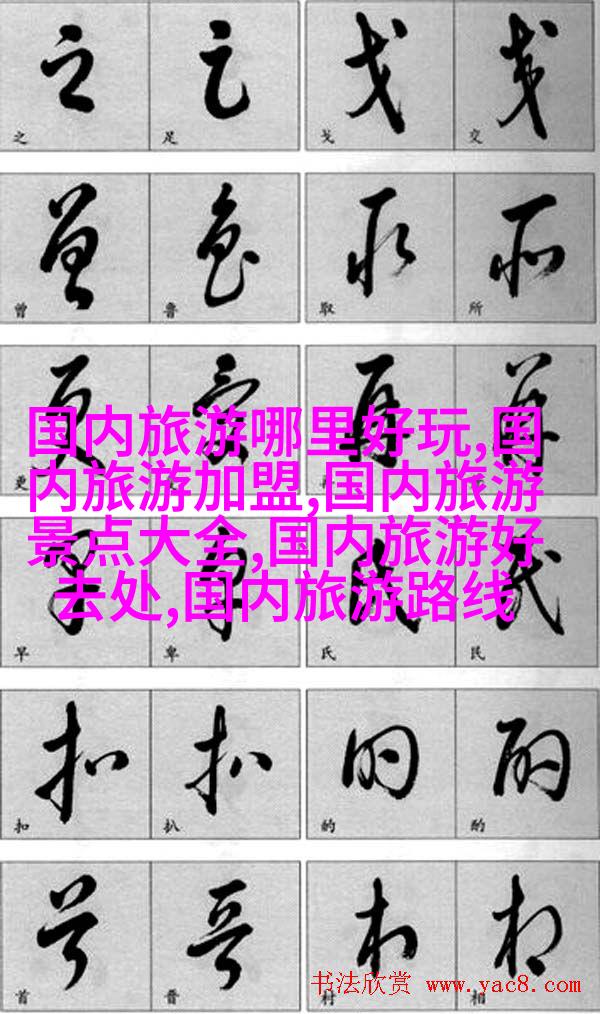 之 足 戈 交
曾 鲁 取 所
国内旅游哪里好玩,国
内旅游加盟,国内旅游
更
景点大全,国内旅游好
去处,国内旅游路线
早 卑 氏 民
扣 扒 的 酌
首 晋 村 相
书法欣赏 www.yac8.com